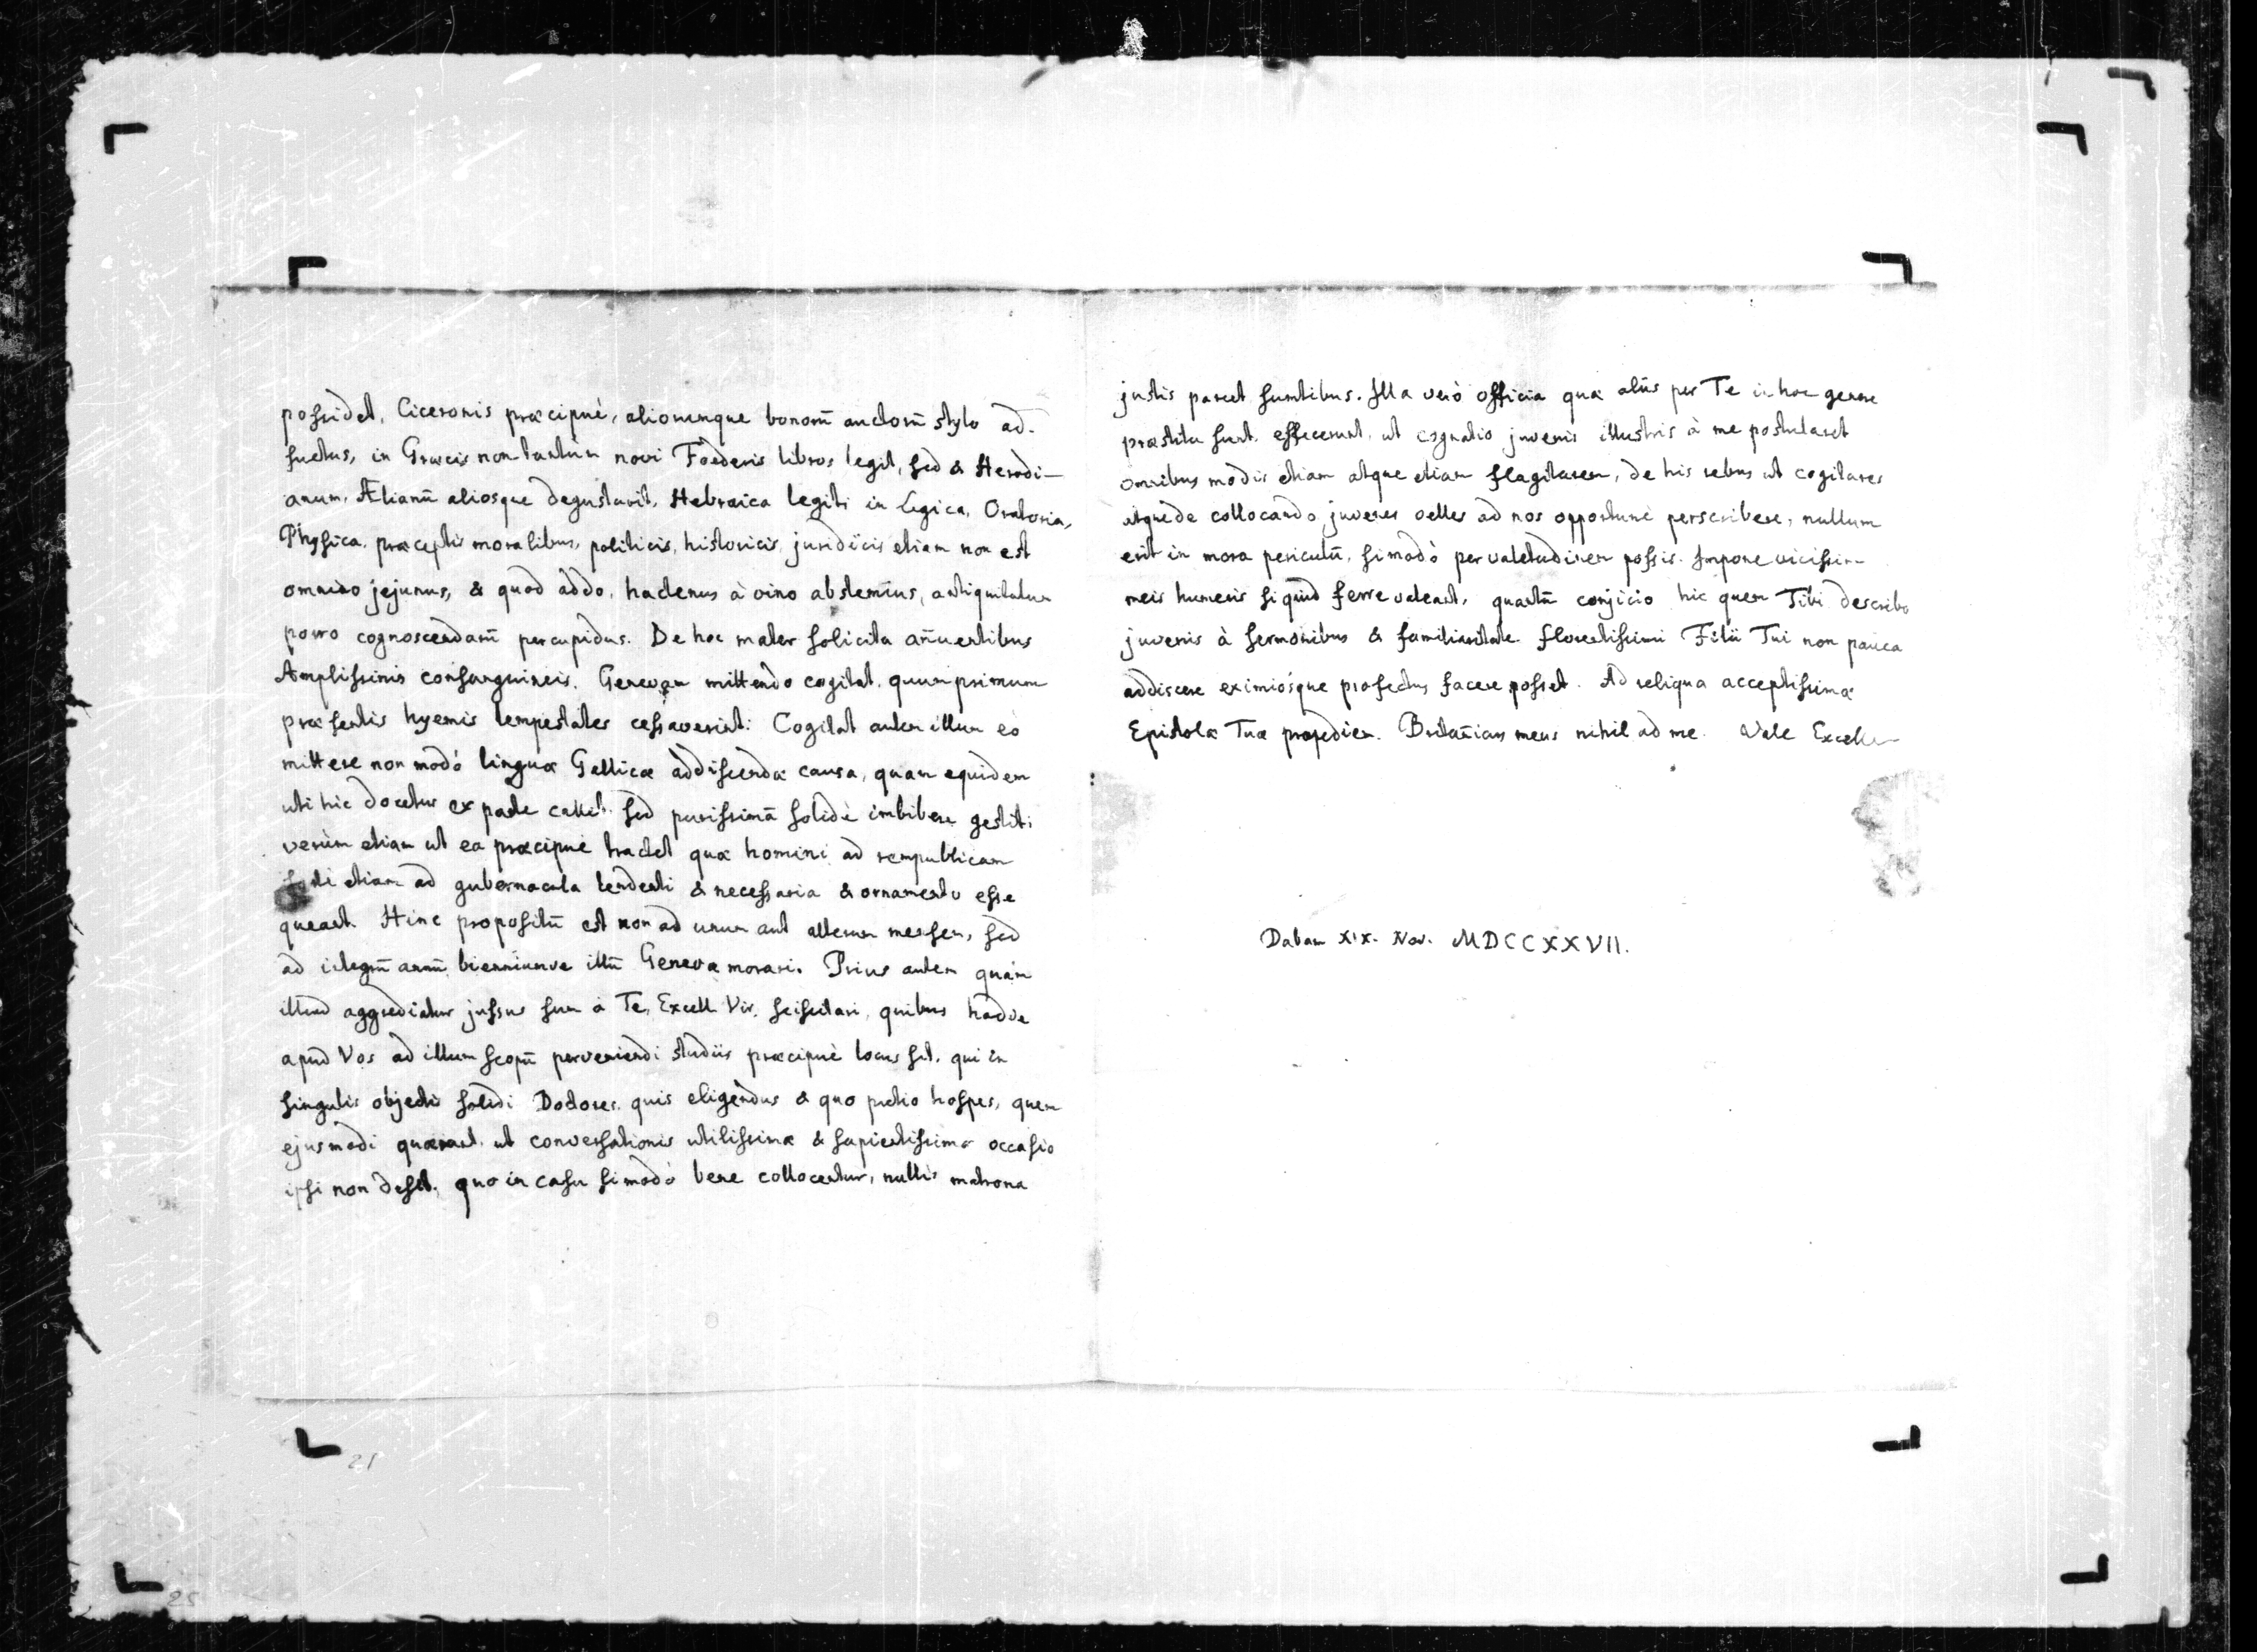 possidet, Ciceronis præcipuè, aliorumque bonorū auctorū stylo ad-
suetus, in Græcis non tantùm novi Fœderis libros legit, sed & Herodi-
anum, Ælianū aliosque degustavit, Hebraica legit; in Logica, Oratoria,
Physica, præceptis moralibus, politicis, historicis, juridicis etiam non est
omnino jejunus, & quod addo, hactenus à vino abstemius, antiquitatum
porro cognoscendarū percupidus. De hoc mater solicita añuentibus
Amplissimis consanguineis, Genevam mittendo cogitat, quum primum
præsentis hyemis tempestates cessaverint: Cogitat autem illum eò
mittere non modò linguæ Gallicæ addiscendæ causa, quam equidem
uti hic docetur ex parte callet, sed purissimā solidè imbibere gestit;
verùm etiam ut ea præcipuè tractet quæ homini ad rempublicam
etiam ad gubernacula tendenti & necessaria & ornamento esse
queant. Hinc propositū est non ad unum aut alterum mensem, sed
ad integrū annū bienniumve illū Genevæ morari. Prius autem quàm
illud aggrediatur jussus sum à Te, Excell. Vir, sciscitari, quibus
apud Vos ad illum scopū perveniendi studiis præcipuè locus sit, qui in
singulis objectis solidi Doctores, quis eligendus & quo pretio hospes, quem
ejusmodi quærant, ut conversationis utilissimæ & sapientissimæ occasio
ipsi non desit, quo in casu si modò bene collocentur, nullis matrona
justis parcet sumtibus. Illa verò officia quæ aliis per Te in hoc genere
præstita sunt, effecerunt, ut cognatio juvenis illustris à me postularet
omnibus modis etiam atque etiam flagitarem, de his rebus ut cogitares
atque de collocando juvenes velles ad nos opportunè perscribere, nullum
erit in mora periculū, si modò per valetudinem possis. Impone vicissim
meis humeris siquid ferre valeant, quantū conjicio hic quem Tibi describo
juvenis à sermonibus & familiaritate florentissimi Filii Tui non pauca
addiscere eximiósque profectus facere posset. Ad reliqua acceptissimæ
Epistolæ Tuæ propediem. Britañicus meus nihil ad me. Vale Excell
Dabam XIX. Nov. MDCCXXVII.
21
25